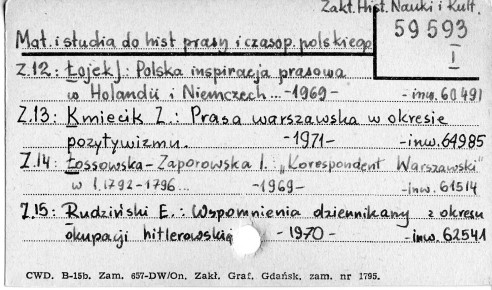 Zakł. Hist. Nauki i Kult.
59 593
I
Mat. i studia do hist prasy i czasop. polskiego
Z.12: Łojek J.: Polska inspiracja prasowa
w Holandii i Niemczech... -1969- -inw. 60491
Z.13: Kmiecik Z.: Prasa warszawska w okresie
pozytywizmu. -1971- -inw. 64985
Z.14: Łossowska-Zaporowska I. "Korespondent Warszawski"
w l. 1792-1796... -1969- -inw. 61514
Z.15: Rudziński E.: Wspomnienia dziennikarzy z okresu
okupacji hitlerowskiej -1970- -inw. 62541
CWD. B-15b. Zam. 657-DW/On. Zakł. Graf. Gdańsk. zam. nr 1795.